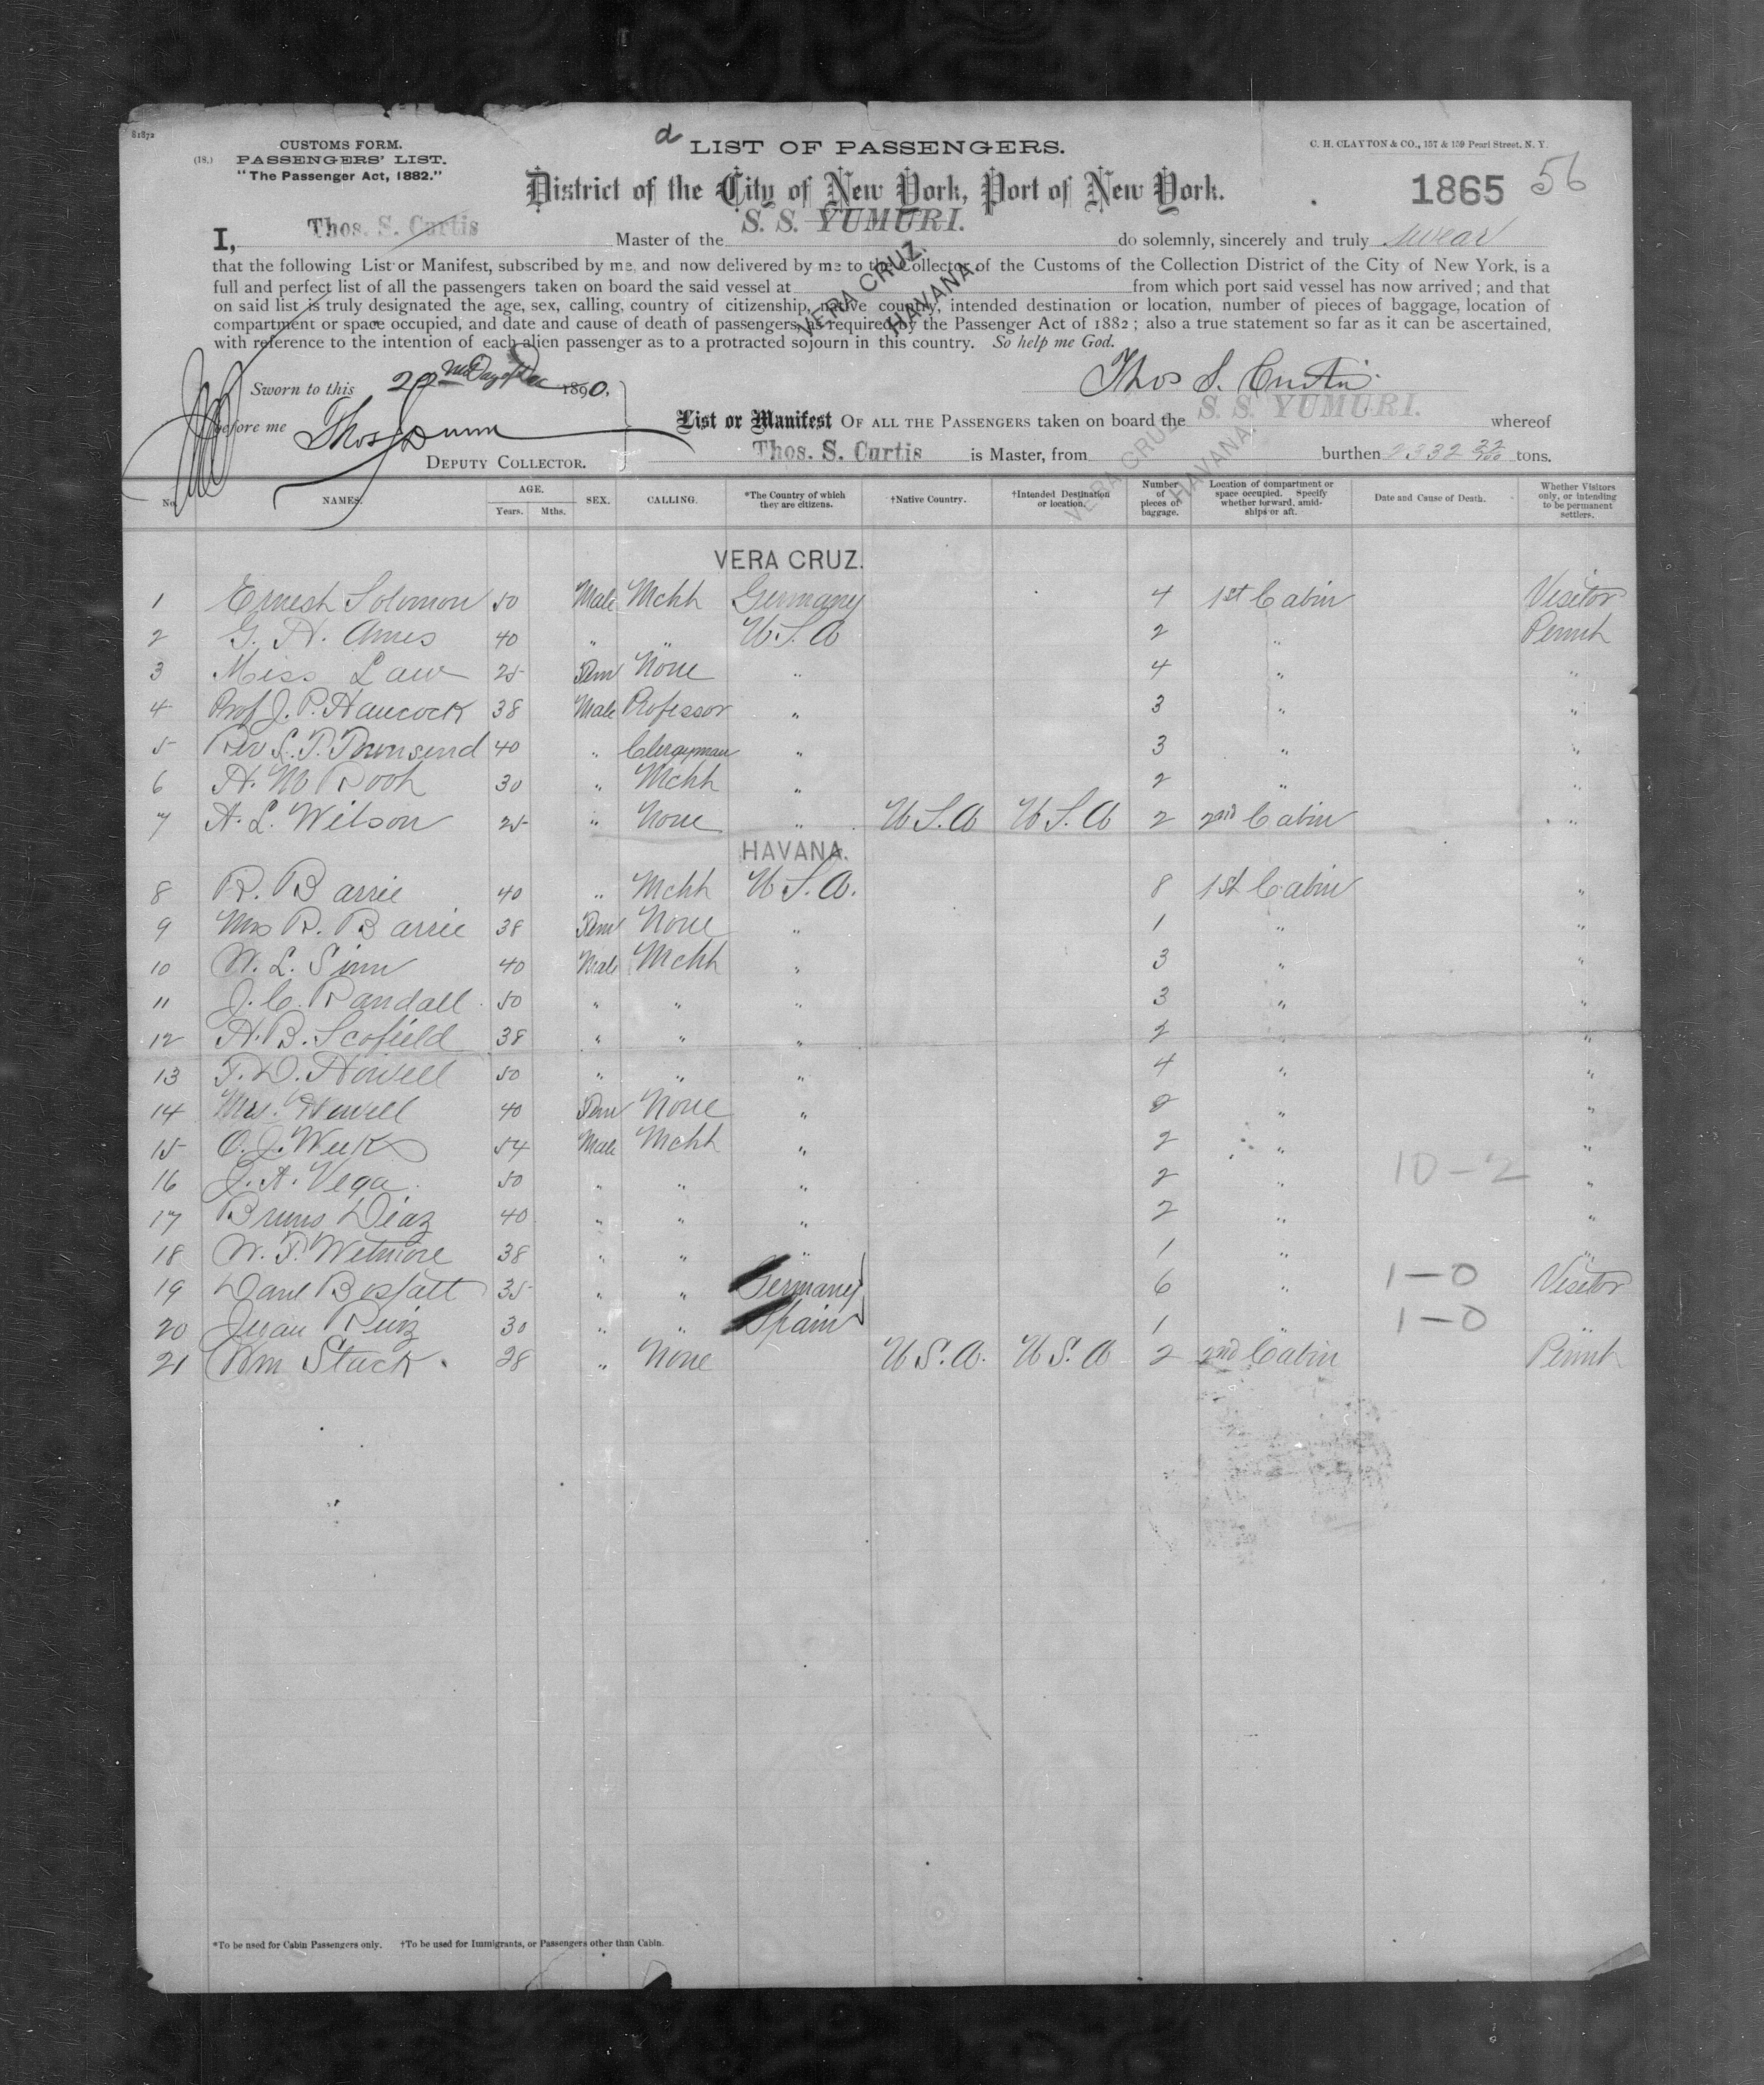 81872
CUSTOMS FORM.
(18.) PASSENGERS' LIST.
"The Passenger Act, 1882."
d LIST OF PASSENGERS.
C. H. CLAYTON & CO., 157 & 159 Pearl Street, N. Y.
District of the City of New York, Port of New York.
1865 56
I, Thos. S. Curtis Master of the S. S. YUMURI. do solemnly, sincerely and truly swear
that the following List or Manifest, subscribed by me, and now delivered by me to the Collector of the Customs of the Collection District of the City of New York, is a
full and perfect list of all the passengers taken on board the said vessel at VERA CRUZ. HAVANA. from which port said vessel has now arrived; and that
on said list is truly designated the age, sex, calling, country of citizenship, native country, intended destination or location, number of pieces of baggage, location of
compartment or space occupied, and date and cause of death of passengers, as required by the Passenger Act of 1882; also a true statement so far as it can be ascertained,
with reference to the intention of each alien passenger as to a protracted sojourn in this country. So help me God.
Sworn to this 22nd Day of Dec 1890,
Thos S. Curtis
before me Thos Dunn
DEPUTY COLLECTOR.
List or Manifest OF ALL THE PASSENGERS taken on board the S. S. YUMURI. whereof
Thos. S. Curtis is Master, from VERA CRUZ. HAVANA. burthen 2332 32/100 tons.
No. NAMES. AGE. Years. Mths. SEX. CALLING. *The Country of which they are citizens. †Native Country. †Intended Destination or location. Number of pieces of baggage. Location of compartment or space occupied. Specify whether forward, amidships or aft. Date and Cause of Death. Whether Visitors only, or intending to be permanent settlers.
VERA CRUZ.
1 Ernest Solomon 50 Male Mcht Germany 4 1st Cabin Visitor
2 G. H. Ames 40 " " U S A 2 " Permt
3 Miss Law 25 Fem None " 4 " "
4 Prof J. P. Hancock 38 Male Professor " 3 " "
5 Rev L. T. Townsend 40 " Clergyman " 3 " "
6 H. M Root 30 " Mcht " 2 " "
7 A. L. Wilson 25 " None " U S A U S A 2 2nd Cabin "
HAVANA.
8 R. Barrie 40 " Mcht U S A. 8 1st Cabin "
9 Mrs R. Barrie 38 Fem None " 1 " "
10 W. L. Sinn 40 Male Mcht " 3 " "
11 J. C. Randall 50 " " " 3 " "
12 H. B. Scofield 38 " " " 2 " "
13 T. D. Howell 50 " " " 4 " "
14 Mrs. Howell 40 Fem None " 2 " "
15 O. J. Weeks 54 Male Mcht " 2 " "
16 J. A. Vega 50 " " " 2 " 10-2 "
17 Bruno Diaz 40 " " " 2 " "
18 W. P. Wetmore 38 " " " 1 " "
19 35 " " Germany 6 " 1-0 Visitor
20 Juan Ruiz 30 " " Spain 1 " 1-0 "
21 Wm Stack. 28 " None U S. A. U S. A 2 2nd Cabin Permt
*To be used for Cabin Passengers only. †To be used for Immigrants, or Passengers other than Cabin.